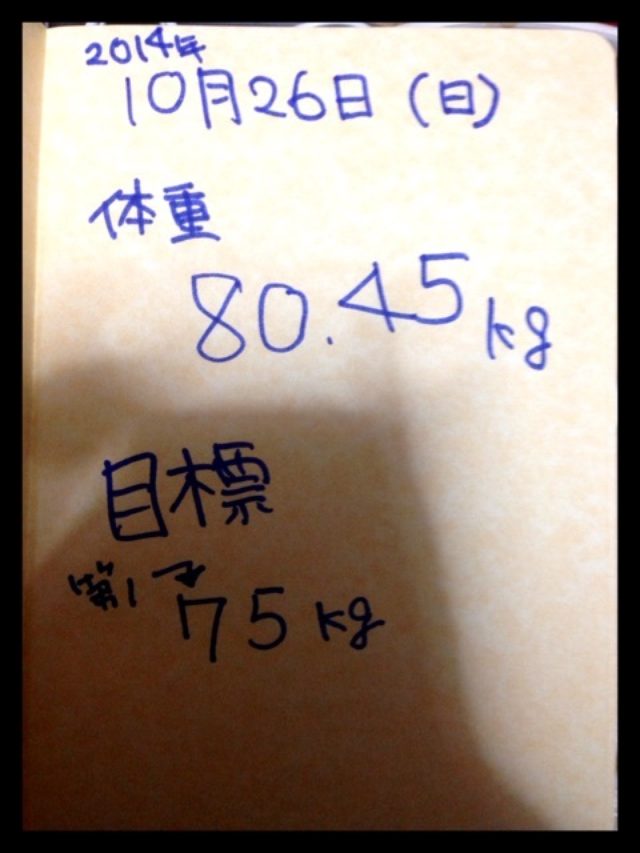 2014年
10月26日(日)
体重
80.45kg
目標
第1→75kg